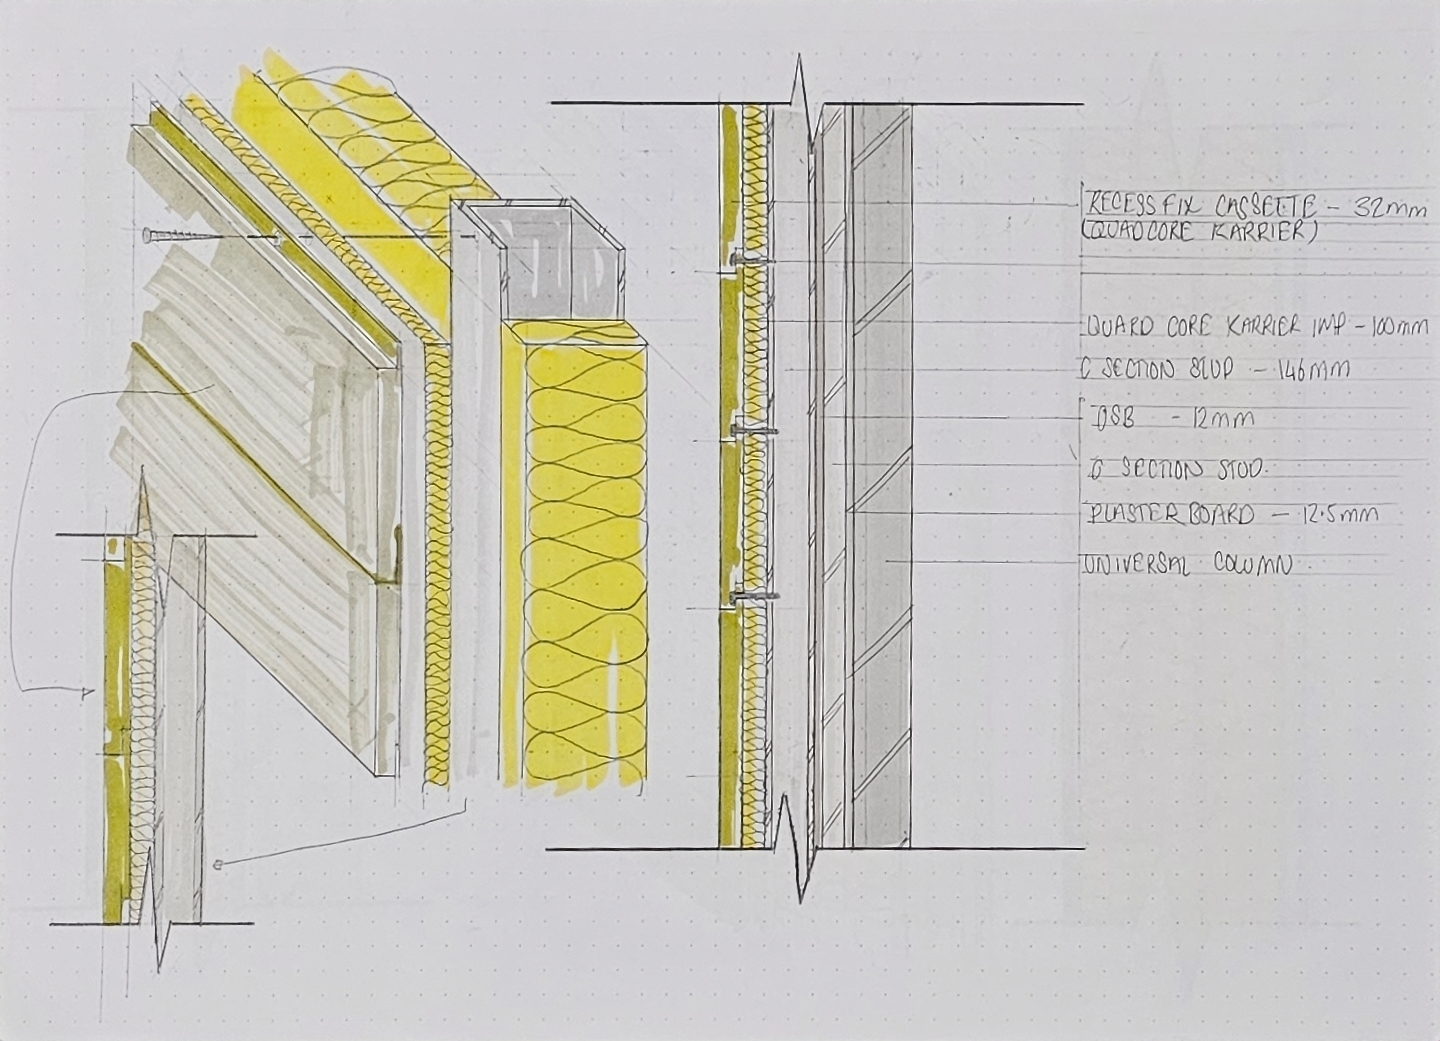 RECESS FIX CASSETTE - 32mm
(QUADCORE KARRIER)
QUARD CORE KARRIER IWP - 100mm
C SECTION STUD - 146mm
OSB - 12mm
C SECTION STUD.
PLASTER BOARD - 12.5mm
UNIVERSAL COLUMN